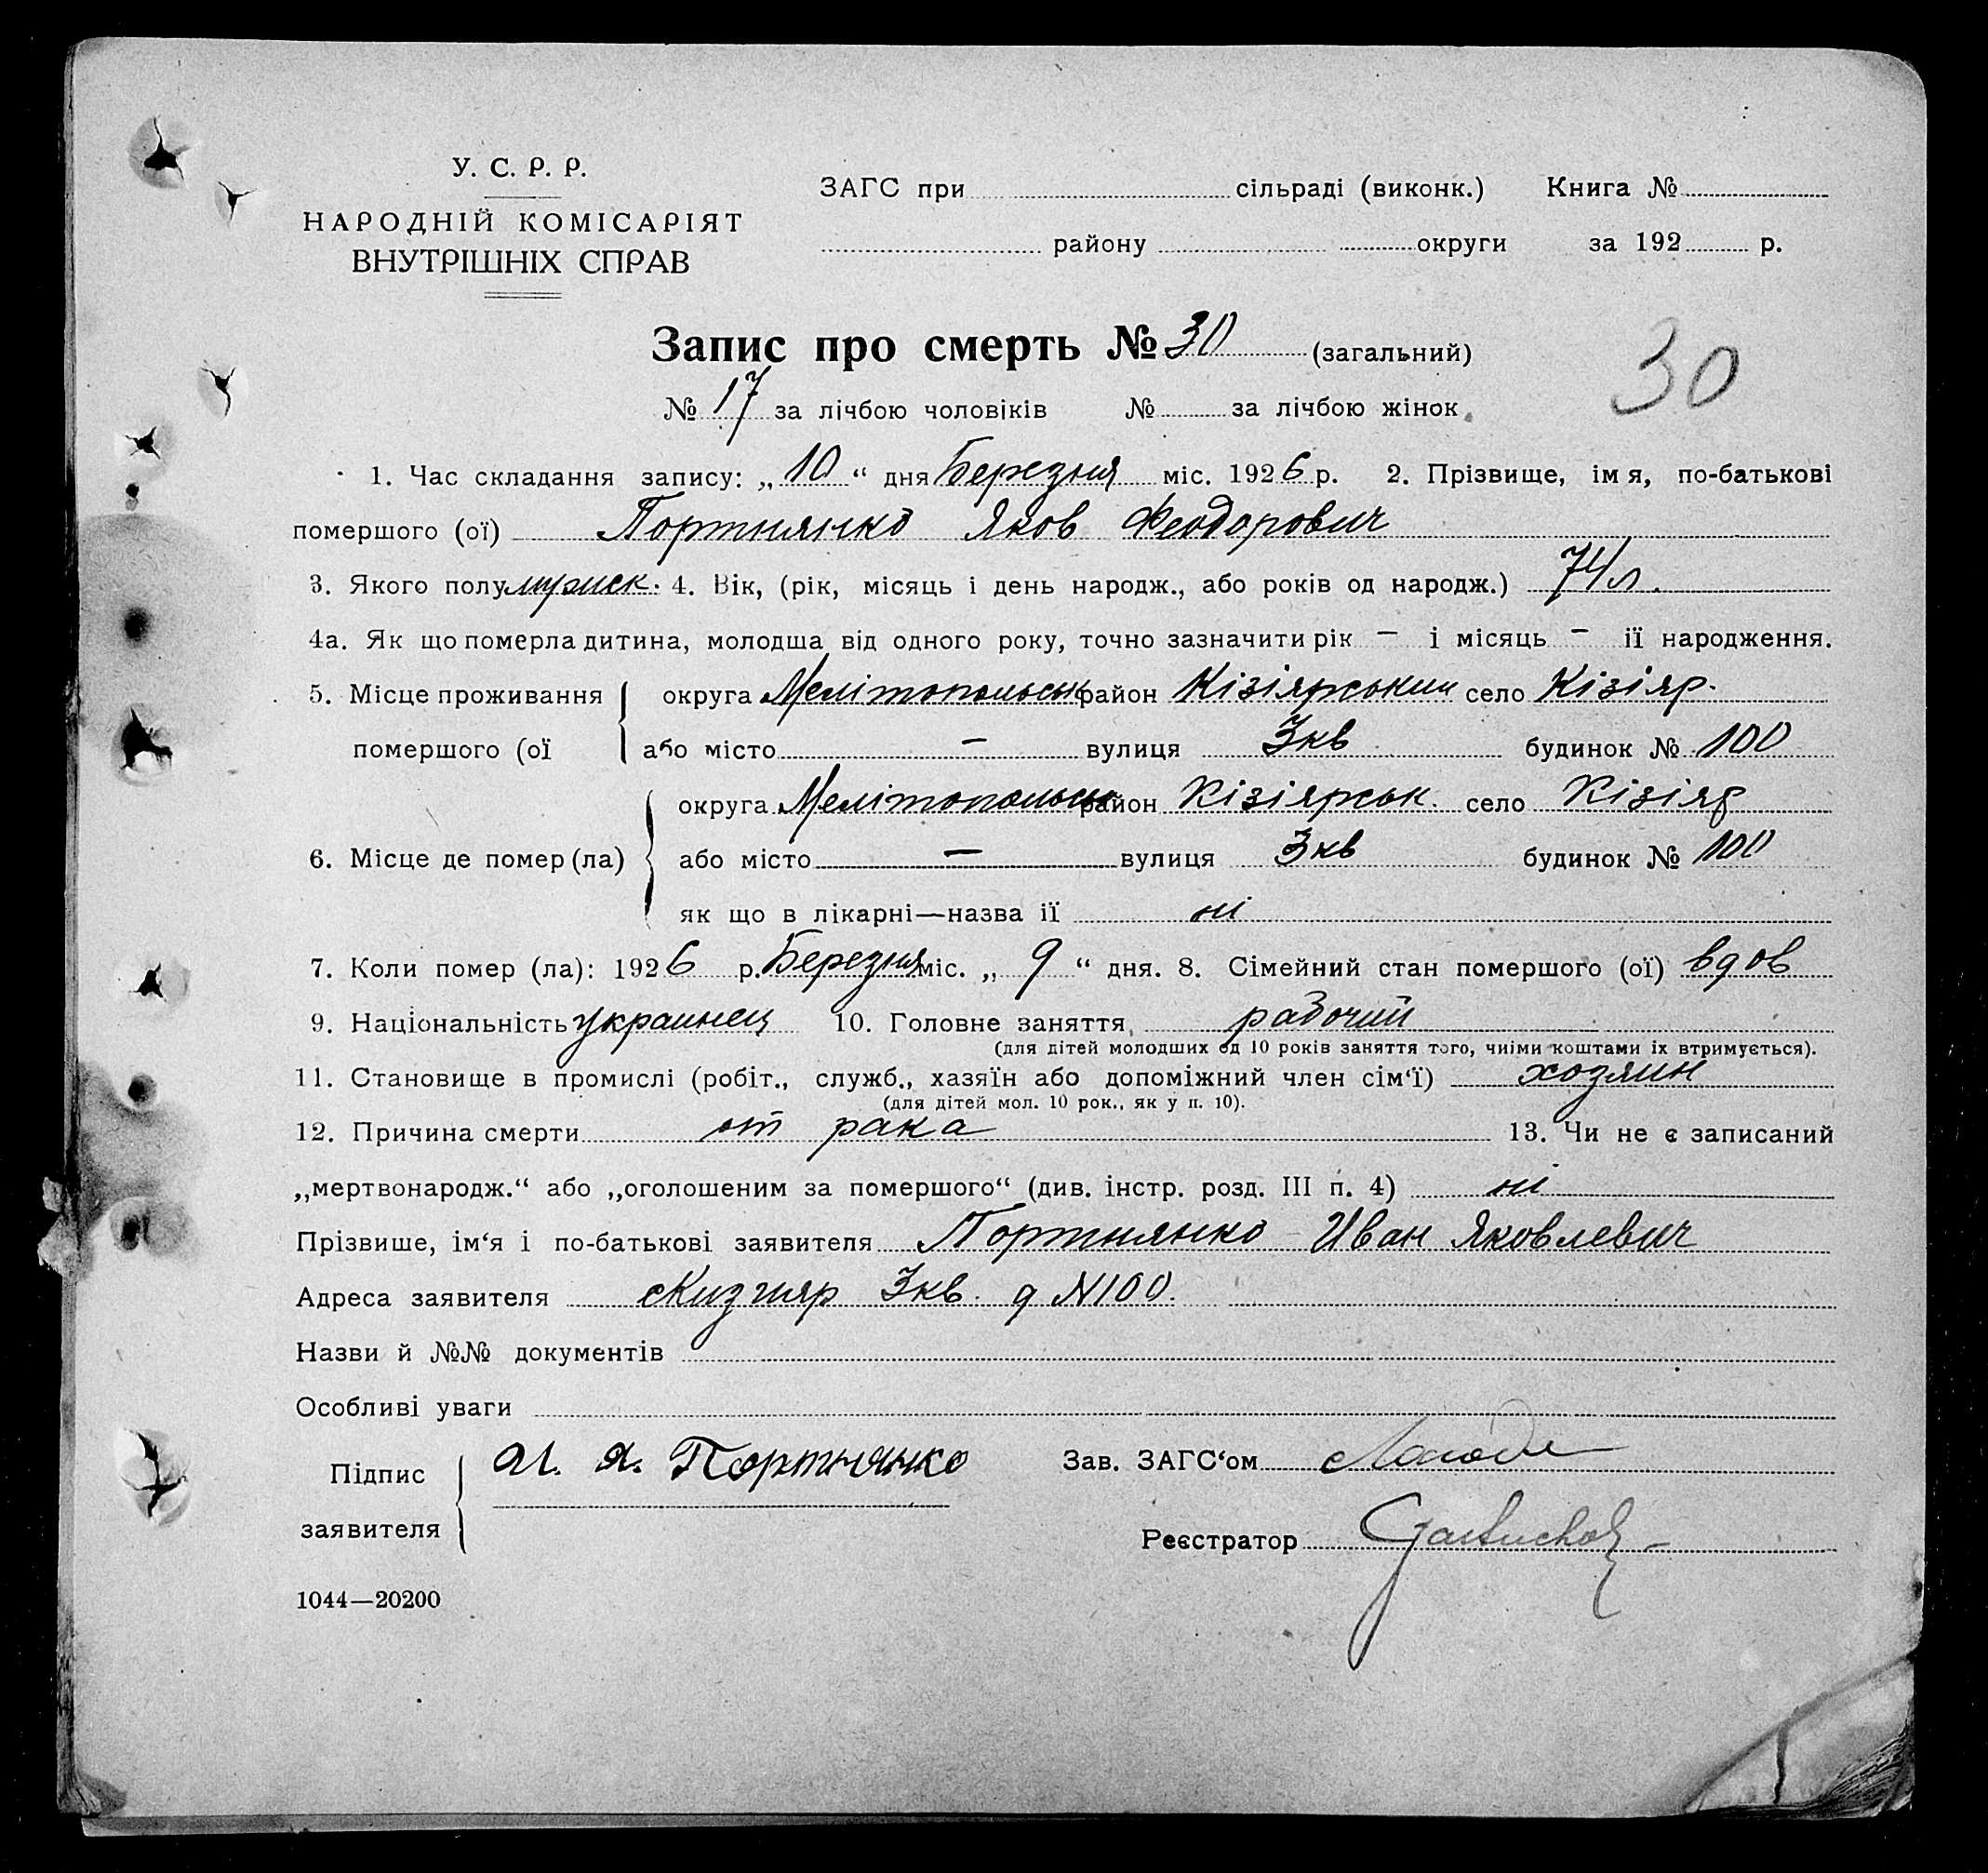 У. С. Р. Р.
НАРОДНІЙ КОМІСАРІЯТ
ВНУТРІШНІХ СПРАВ
ЗАГС при сільраді (виконк.) Книга №
району округи за 192 р.
Запис про смерть № 30 (загальний)
30
№ 17 за лічбою чоловіків № за лічбою жінок.
1. Час складання запису: „ 10 “ дня Березня міс. 1926 р. 2. Прізвище, ім я, по-батькові
помершого (ої) Портнянко Яков Феодорович
3. Якого полу мужск. 4. Вік, (рік, місяць і день народж., або років од народж.) 74 л.
4а. Як що померла дитина, молодша від одного року, точно зазначити рік — і місяць — ії народження.
5. Місце проживання округа Мелітопольськ район Кізіярський село Кізіяр.
помершого (ої або місто — вулиця 3 кв будинок № 100
округа Мелітопольськ район Кізіярськ. село Кізіяр
6. Місце де помер (ла) або місто — вулиця 3 кв будинок № 100
як що в лікарні—назва ії ні
7. Коли помер (ла): 1926 р. Березня міс. „ 9 “ дня. 8. Сімейний стан помершого (ої) вдов
9. Національність украинец 10. Головне заняття, рабочий
(для дітей молодших од 10 років заняття того, чиїми коштами їх втримується).
11. Становище в промислі (робіт., служб., хазяїн або допоміжний член сім‘ї) хозяин
(для дітей мол. 10 рок., як у п. 10).
12. Причина смерти от рака 13. Чи не є записаний
„мертвонародж.“ або „оголошеним за помершого“ (див. інстр. розд. III п. 4) ні
Прізвише, ім‘я і по-батькові заявителя Портнянко Иван Яковлевич
Адреса заявителя с Кизияр 3 кв. д N 100.
Назви й №№ документів
Особливі уваги
Підпис И. Я. Портнянко Зав. ЗАГС‘ом
заявителя
Реєстратор
1044—20200